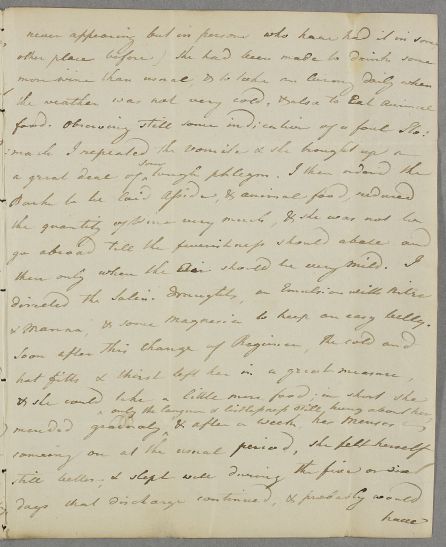 never appearing but in persons who have had it in some
other place before) She had been made to drink some
more wine than usual, & to take an airing daily when
the weather was not very cold, & also to Eat animal
food. Observing still some indication of a foul Sto:
:mach I repeated the vomits & she brought up a
a great deal of sour tough phlegm. I then ordered the
Bark to be laid aside, & animal food, reduced
the quantity of wine very much, & she was not to
go abroad till the feverishness should abate and
then only when the Air should be very mild. I
directed the Saline draughts, an Emulsion with Nitre
& Manna, & some Magnesia to keep an easy belly.
Soon after this change of Regimen, the cold and
hot fitts & thirst left her in a great measure,
& she could take a little more food; in short she
only the languor & listlessness still hung about her,
mended gradualy, & after a week, her Menses
coming on at the usual period, she felt herself
still better, & slept well during the five or six
days that discharge continued, & probably would
have